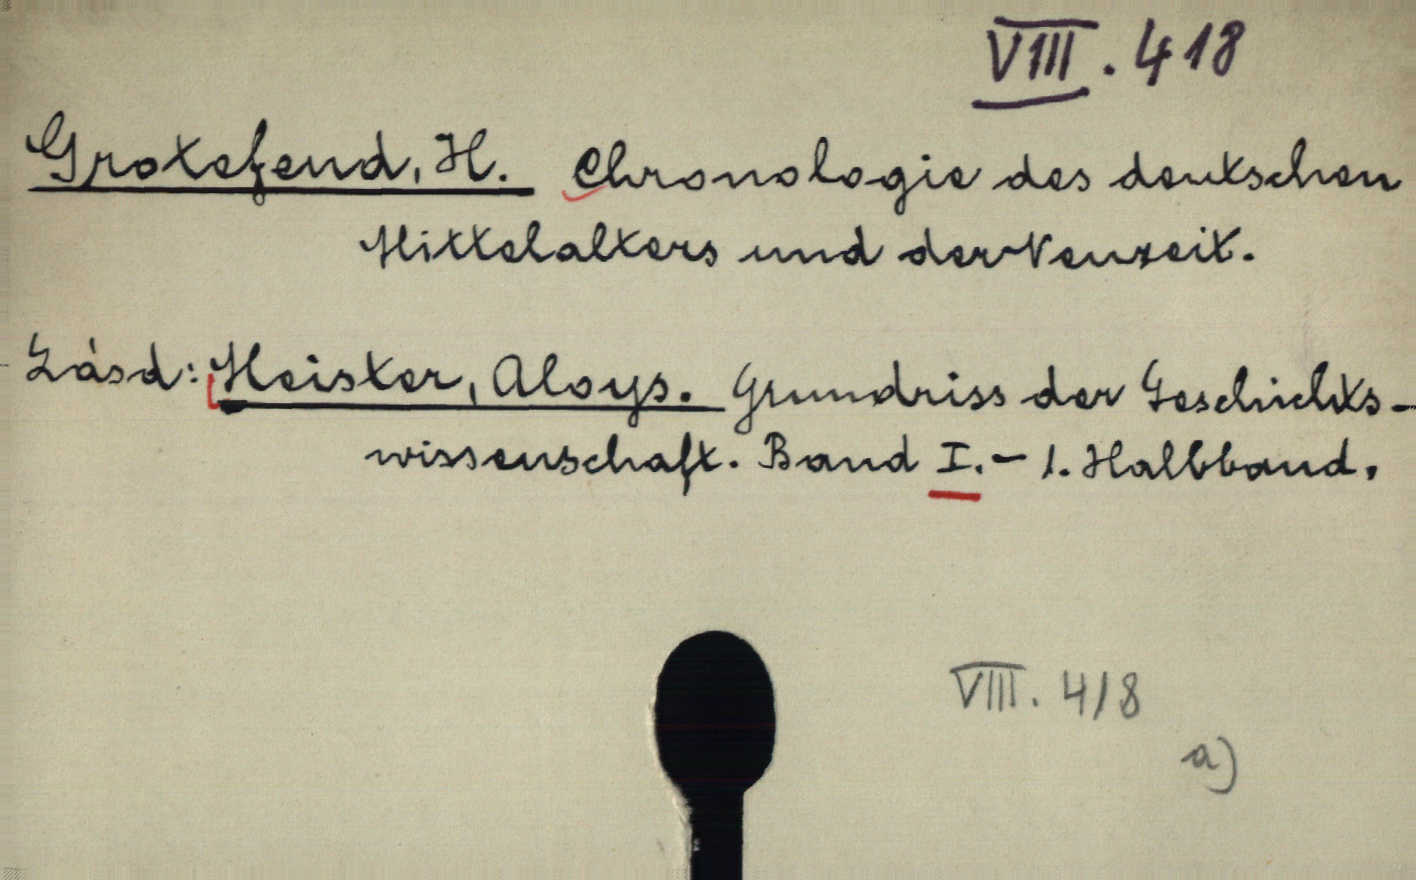 VIII. 418
Grotefend, H. Chronologie des deutschen
Mittelalters und der Neuzeit.
Lásd: Meister, Aloys. Grundriss der Geschichts-
wissenschaft. Band I. - 1. Halbband.
VIII. 418
a)